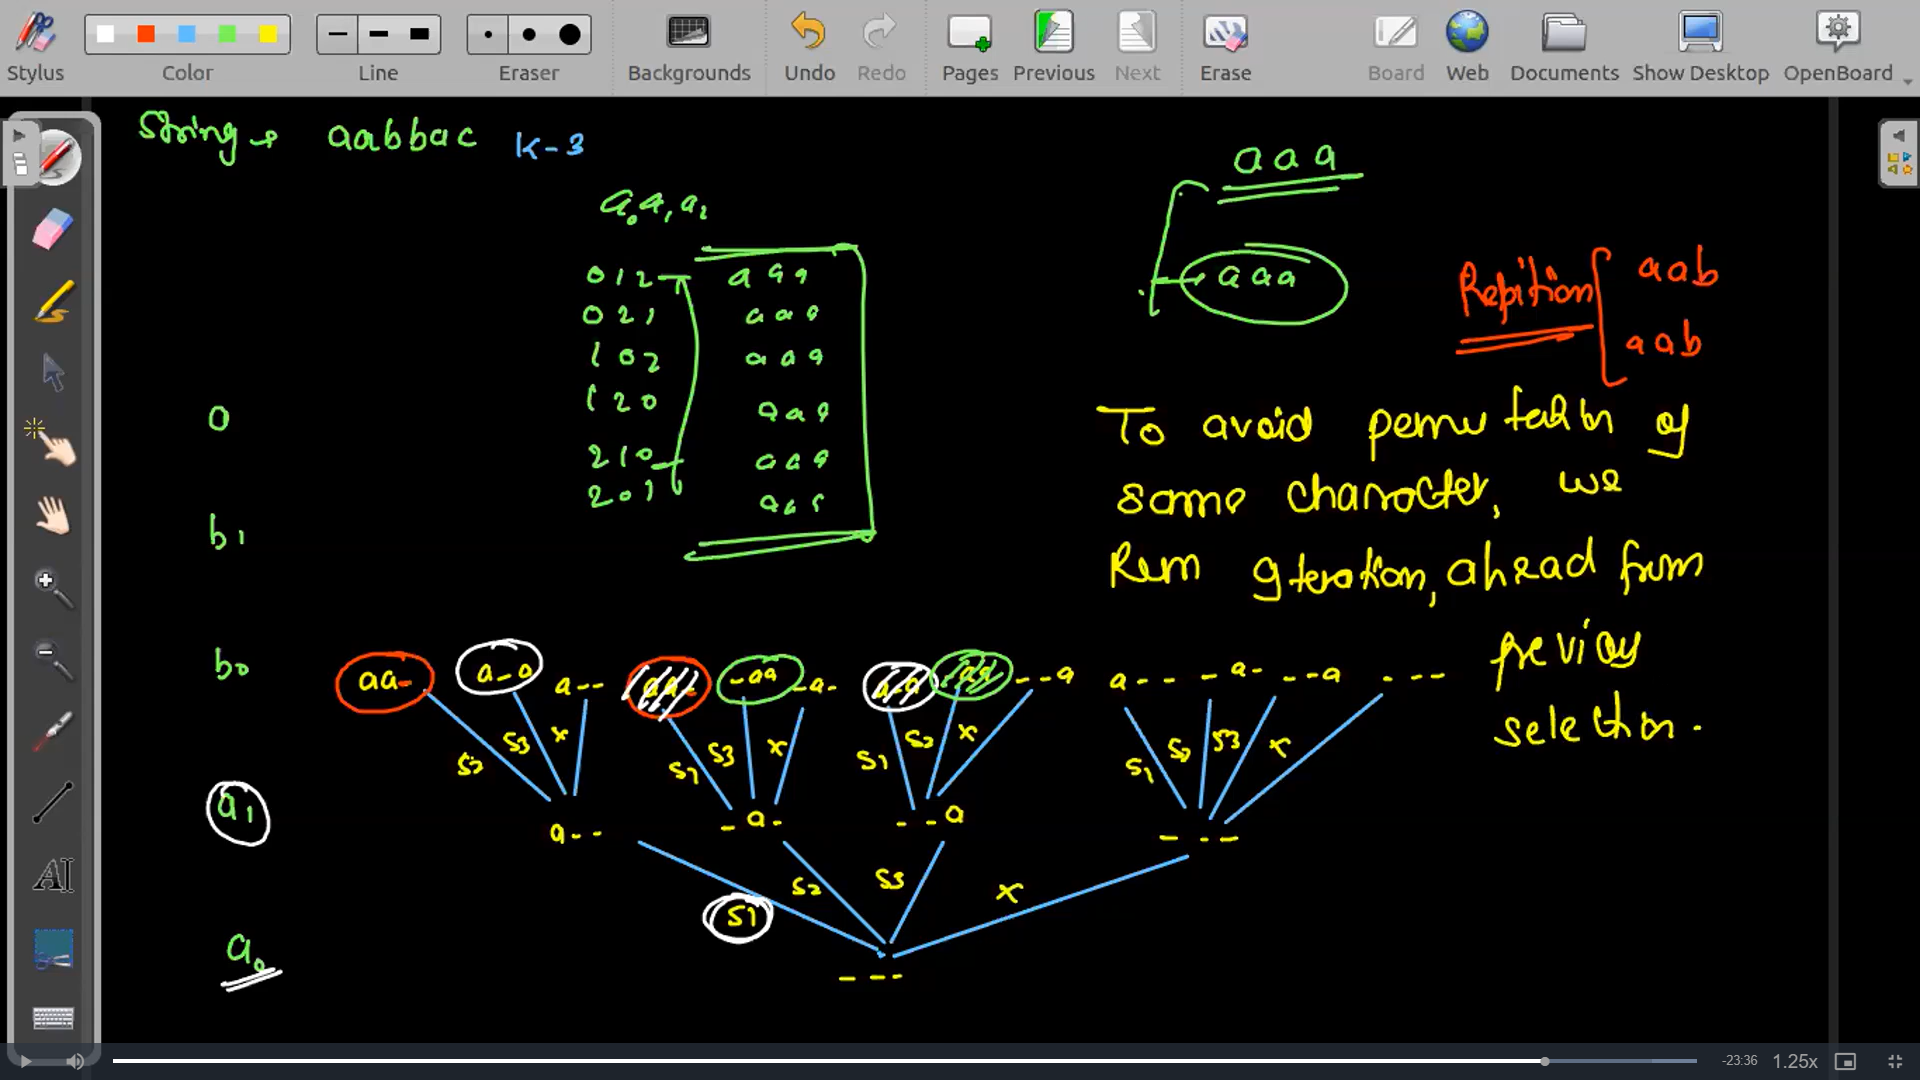 Stylus
Color
Line
Eraser
Backgrounds
Undo
Redo
Pages
Previous
Next
Erase
Board
Web
Documents
Show Desktop
OpenBoard
String → aabbac K-3
a0 a1 a2
0 1 2 a a a
0 2 1 a a a
1 0 2 a a a
1 2 0 a a a
2 1 0 a a a
2 0 1 a a a
a a a
a a a
Repition
aab
aab
To avoid permutation of
same character, we
Rum iteration, ahead from
previous
selection.
0
b1
b0
a1
a0
aa- a_a a-- aa- -aa -a- a-a -aa --a a-- -a- --a ---
S2 S3 x S1 S3 x S1 S2 x S1 S2 S3 x
a-- -a- --a ---
S1 S2 S3 x
---
-23:36
1.25x